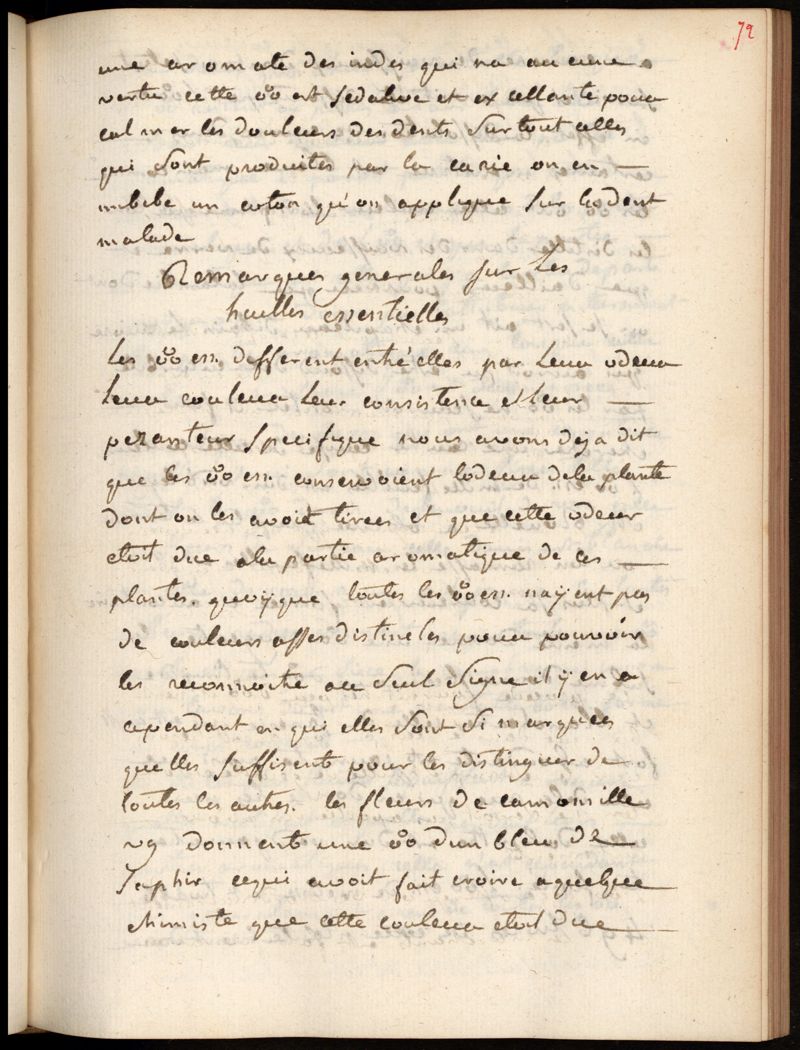 72
une aromate des indes qui na aucune
vertu cette ȣ̊ est sedative et excellante pour
calmer les douleurs des dents surtout celles
qui sont produites par la carie on en
imbibe un coton qu'on applique sur la dent
malade
Remarques generales sur Les
huilles essentielles
Les oo ess. different entre elles par Leur odeur
Leur couleur Leur consistence et Leur
pezanteur specifique nous avons deja dit
que les oo ess. conservoient lodeur dela plante
dont on les avoit tirees et que cette odeur
etoit due ala partie aromatique de ces
plantes. quoyque toutes les oo ess. nayent pas
de couleurs asses distinctes pour pouvoir
les reconnoitre au seul signe il y en a
cependant en qui elles sont si marquées
quelles suffisent pour les distinguer de
toutes les autres. les fleurs de camomille
vg donnent une oo dun bleu de
saphir cequi avoit fait croire aquelque
chimiste que cette couleur etoit due